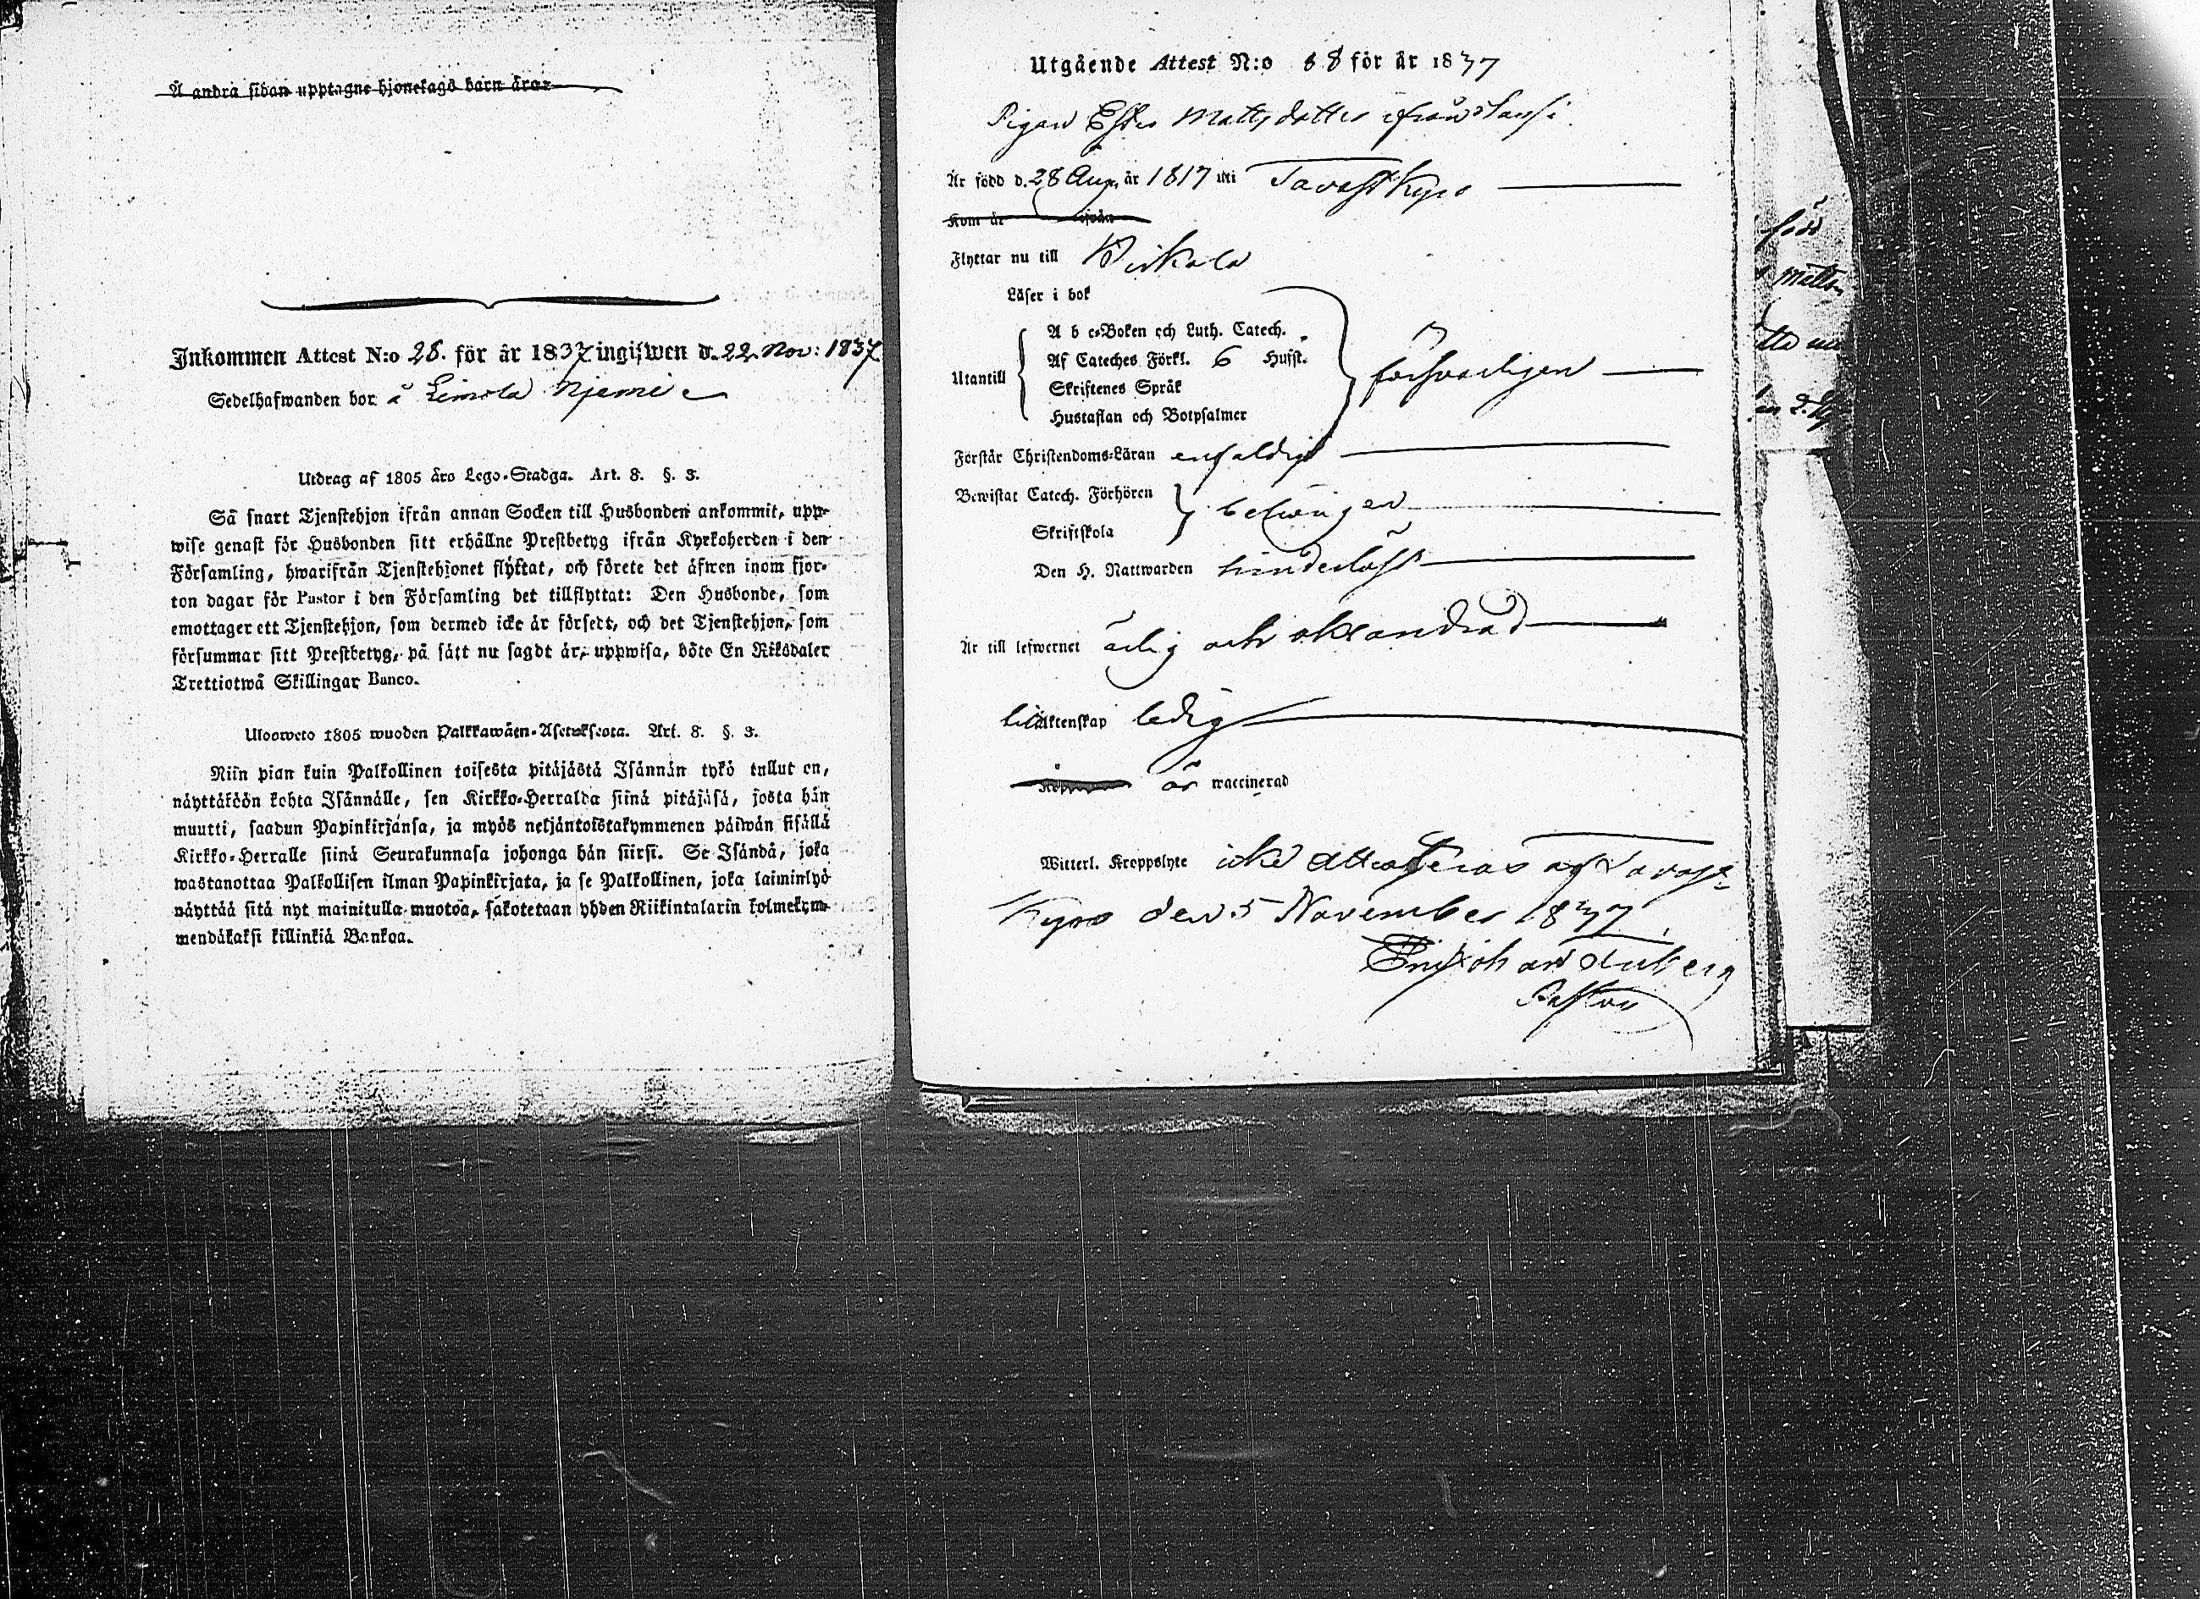 Å andra sidan upptagne hjonelags barn äro:
Inkommen Attest N:o 28. för år 1837 ingifwen d. 22. Nov: 1837
Sedelhafwanden bor å Liniola Njemi
Utdrag af 1805 års Lego-Stadga. Art. 8. §. 3.
Så snart Tjenstehjon ifrån annan Socken till Husbonden ankommit, upp-
wise genast för Husbonden sitt erhållne Prestbetyg ifrån Kyrkoherden i den
Församling, hwarifrån Tjenstehjonet flyttat, och förete det äfwen inom fjor-
ton dagar för Pastor i den Församling det tillflyttat: Den Husbonde, som
emottager ett Tjenstehjon, som dermed icke är försedt, och det Tjenstehjon, som
försummar sitt Prestbetyg, på sätt nu sagdt är, uppwisa, böte En Riksdaler
Trettiotwå Skillingar Banco.
Uloosweto 1805 wuoden Palkkawäen-Asetuksesta. Art. 8. §. 3.
Niin pian kuin Palkollinen toisesta pitäjästä Isännän tykö tullut on,
näyttäköön kohta Isännälle, sen Kirkko-Herralda siinä pitäjäsä, josta hän
muutti, saadun Papinkirjansa, ja myös neljäntoistakymmenen päiwän sisällä
Kirkko-Herralle siinä Seurakunnasa johonga hän siirsi. Se Isändä, joka
wastanottaa Palkollisen ilman Papinkirjata, ja se Palkollinen, joka laiminlyö
näyttää sitä nyt mainitulla muotoa, sakotetaan yhden Riikintalarin kolmekym-
mendäkaksi killinkiä Bankoa.
Utgående Attest N:o 68 för år 1837
Pigan Esther Mattsdotter ifrån
Är född d. 28 Aug. år 1817 uti Tavastkyro
Kom år ifrån
Flyttar nu till Birkala
Läser i bok
A b c-Boken och Luth. Catech.
Utantill Af Cateches Förkl. 6 Hufst. försvarligen
Skriftenes Språk
Hustaflan och Botpsalmer
Förstår Christendoms-Läran enfaldigt
Bewistat Catech. Förhören
Skriftskola
Den H. Nattwarden hinderlöst
Är till lefwernet ärlig och oklandrad
till äktenskap ledig
är waccinerad
Witterl. Kroppslyte icke attesteras af Tavast-
Kyro den 5 November 1837.
Pastor
född